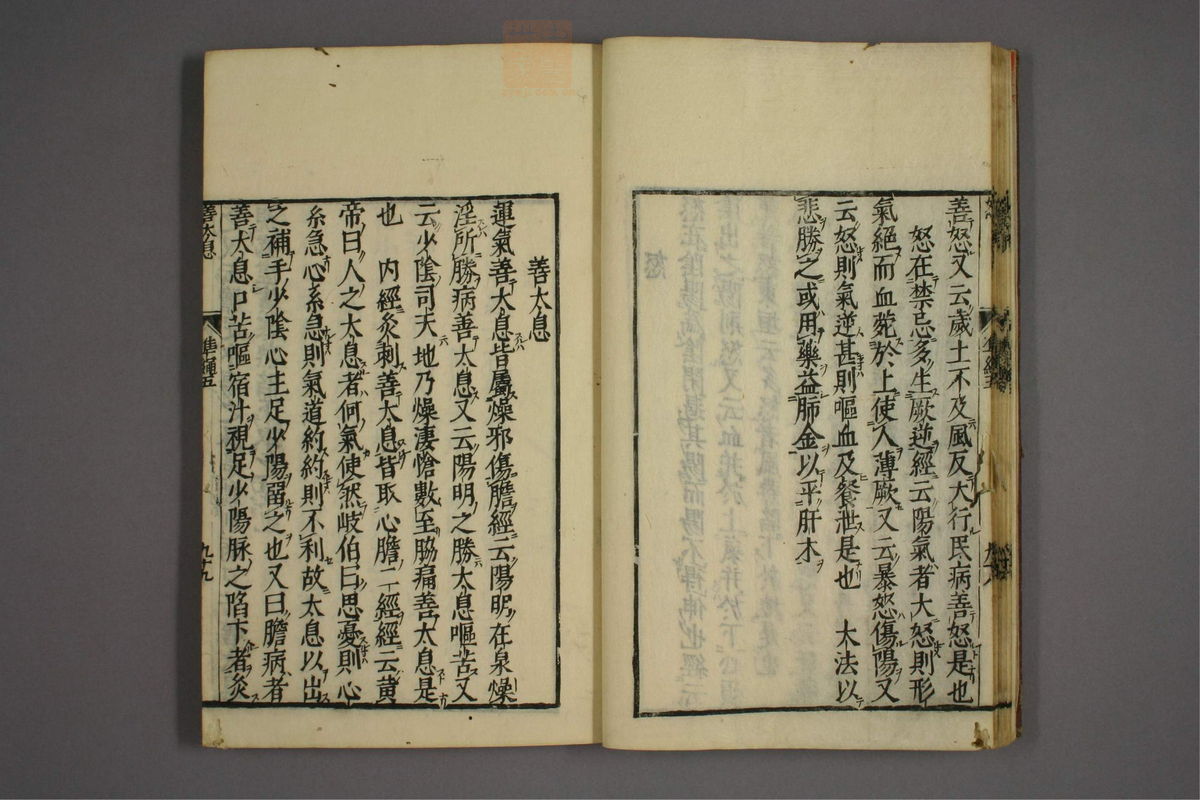 善怒又云歲土不及風反大行民病善怒是也
怒在禁忌多生厥逆經云陽氣者大怒則形
氣絕而血菀於上使人薄厥又云暴怒傷陽又
云怒則氣逆甚則嘔血及餐泄是也　大法以
悲勝之或用藥益肺金以平肝木
善太息
運氣善太息皆屬燥邪傷膽經云陽明在泉燥
淫所勝病善太息又云陽明之勝太息嘔苦又
云少陰司天地乃燥淒愴數至脇痛善太息是
也　内經灸刺善太息皆取心膽二經經云黄
帝曰人之太息者何氣使然岐伯曰思憂則心
系急心系急則氣道約約則不利故太息以出
之補手少陰心主足少陽留之也又曰膽病者
善太息口苦嘔宿汁視足少陽脉之陷下者灸
善太息
準繩五
九十九